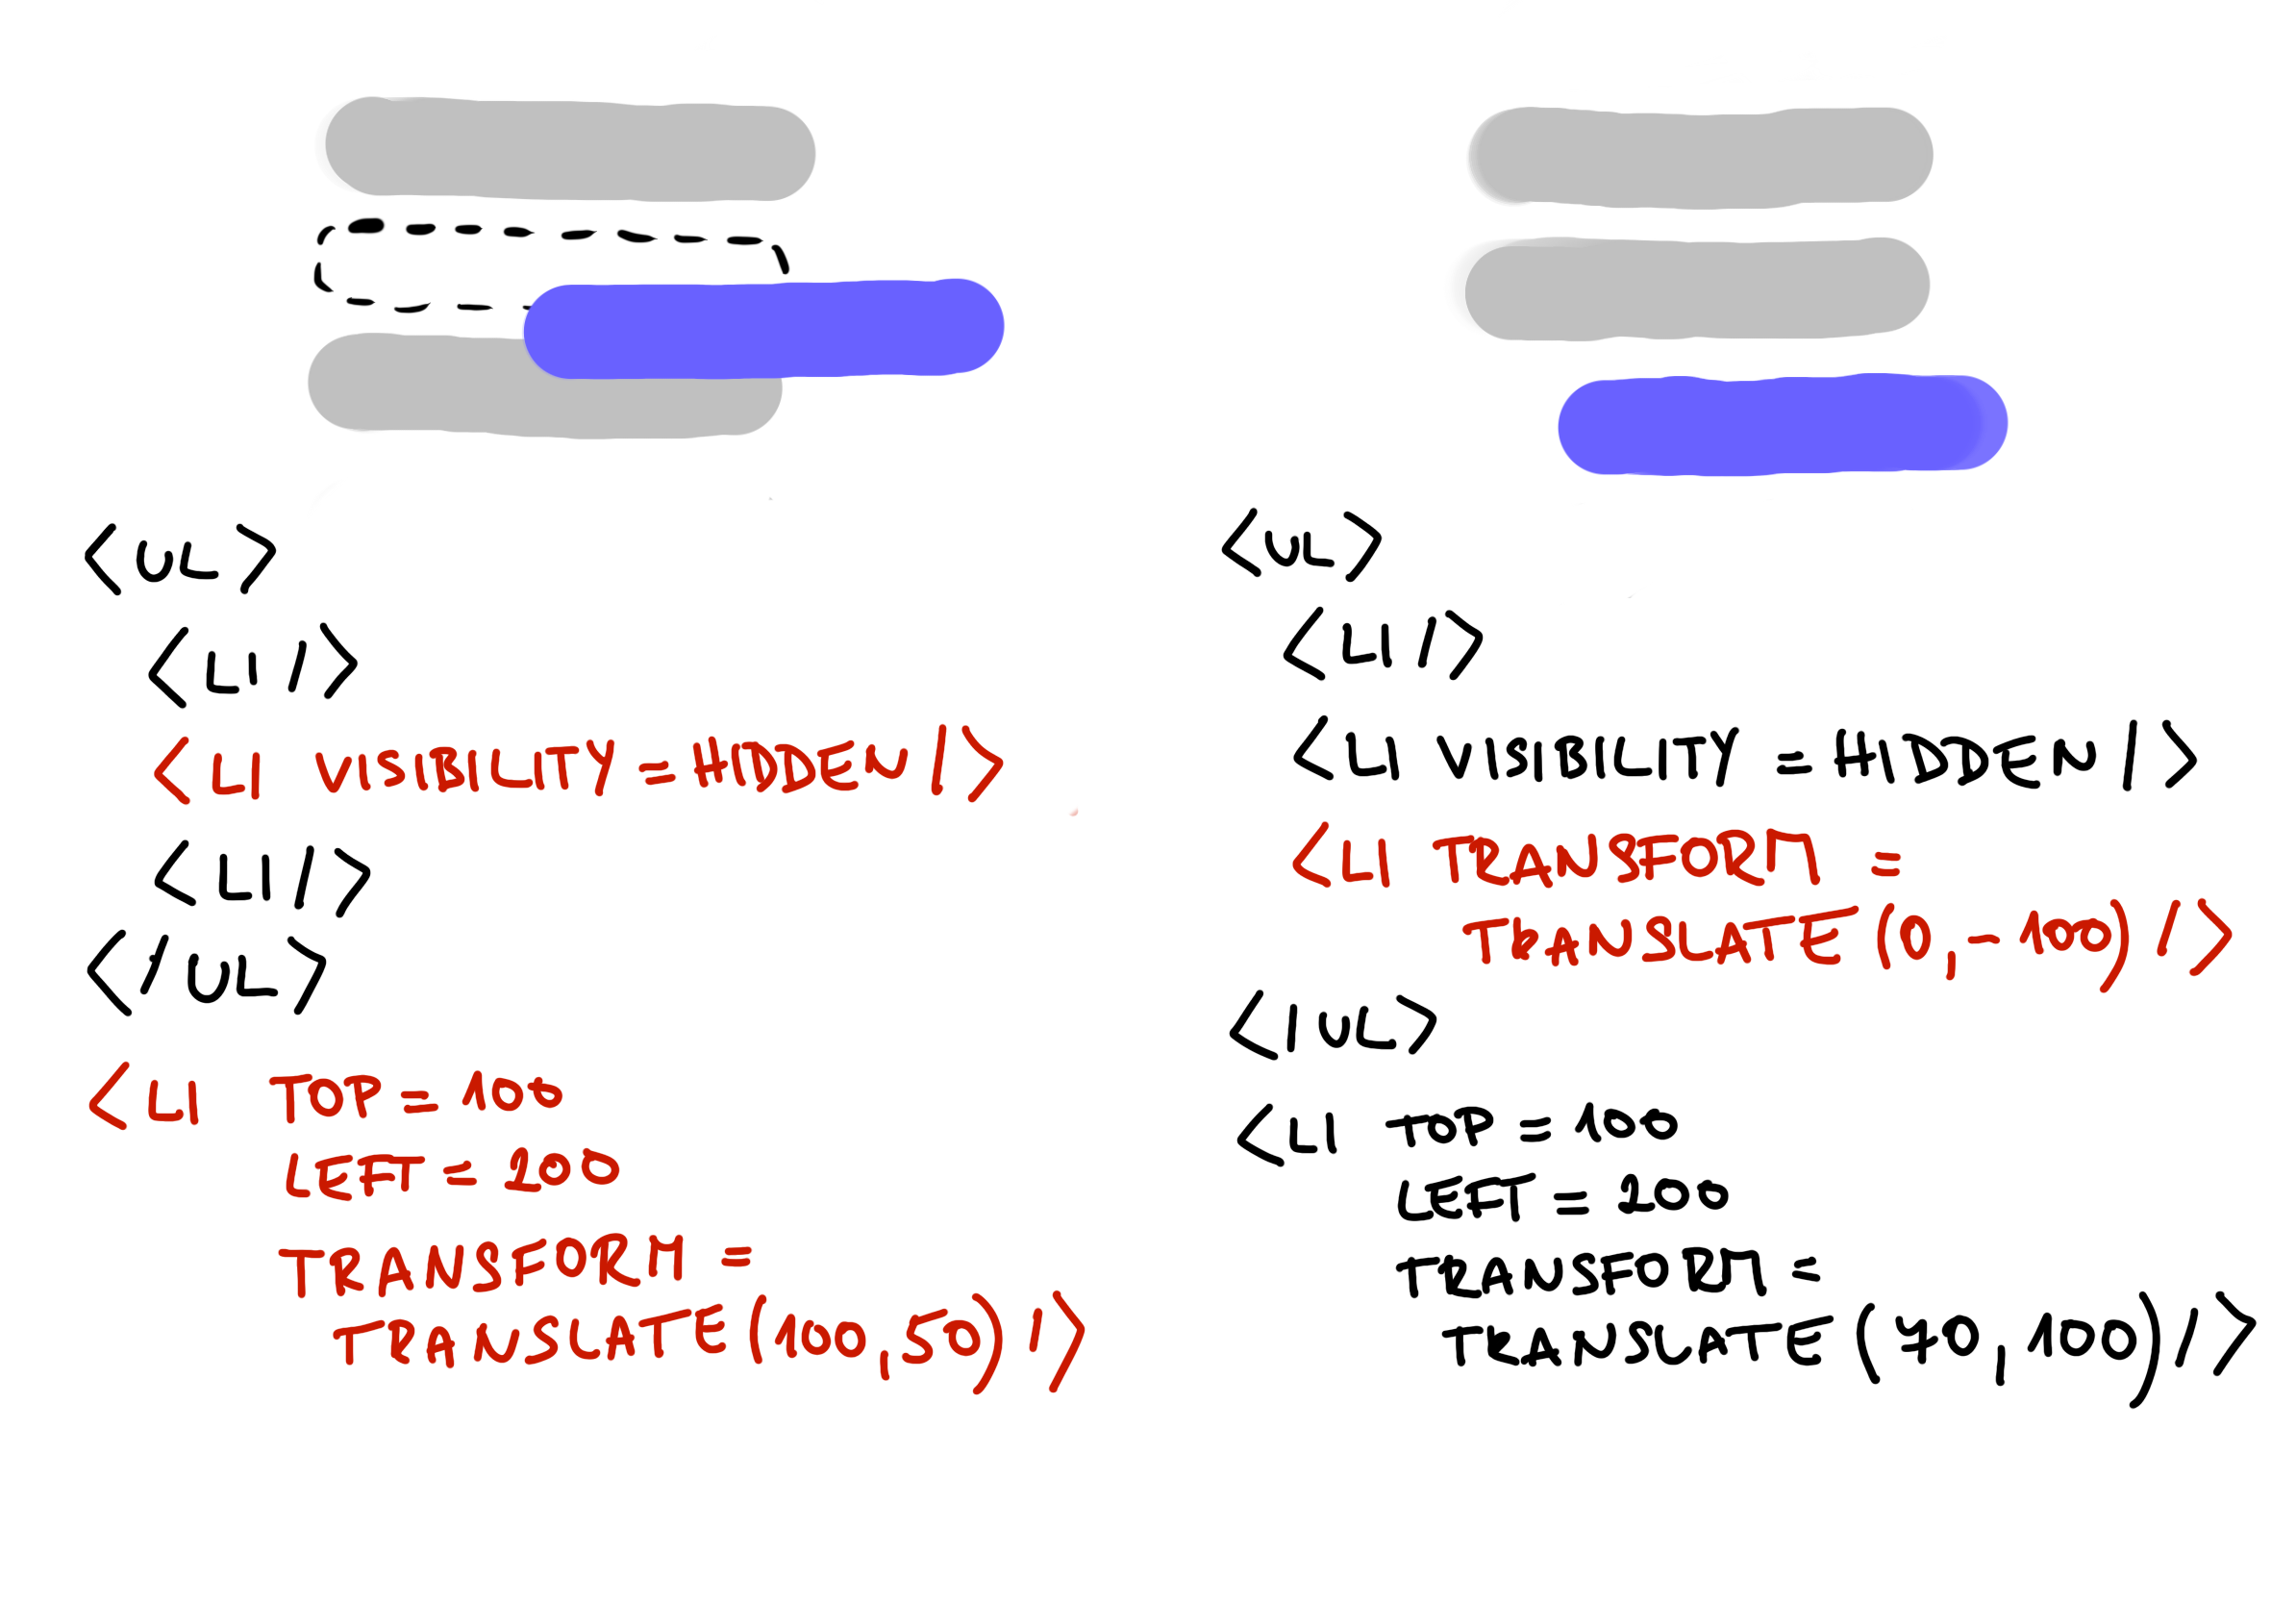 <UL>
<LI />
<LI VISIBILITY = HIDDEN />
<LI />
</UL>
<LI TOP = 100
LEFT = 200
TRANSFORM =
TRANSLATE (100, 50) />
<UL>
<LI />
<LI VISIBILITY = HIDDEN />
<LI TRANSFORM =
TRANSLATE (0, -100) />
</UL>
<LI TOP = 100
LEFT = 200
TRANSFORM =
TRANSLATE (70, 100) />